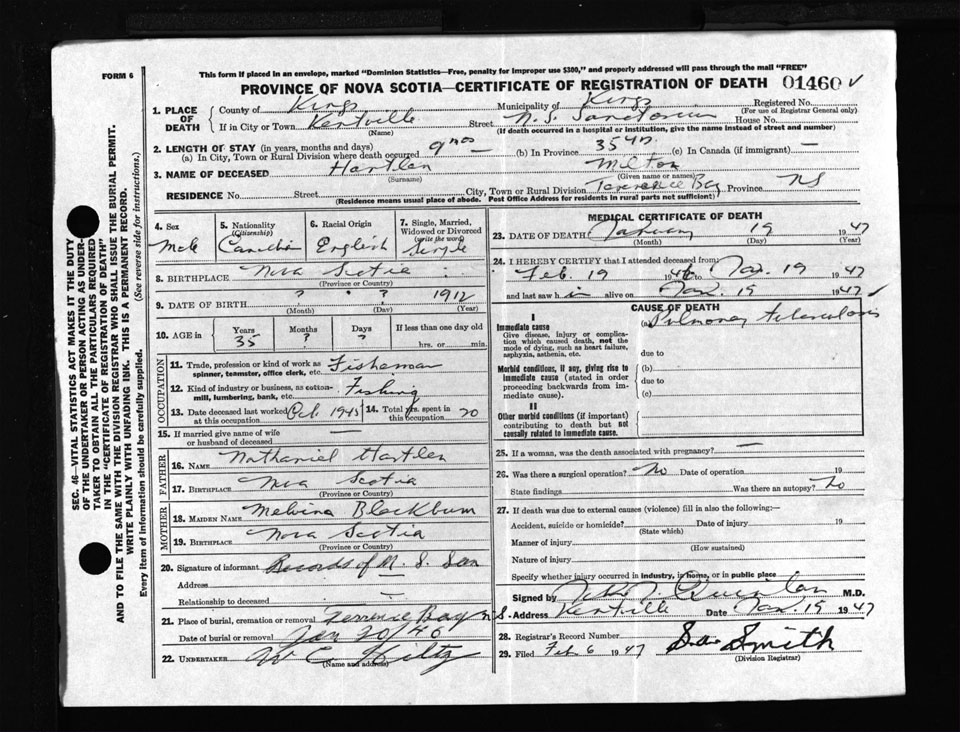 FORM 6
This form if placed in an envelope, marked "Dominion Statistics—Free, penalty for improper use $300," and properly addressed will pass through the mail "FREE"
PROVINCE OF NOVA SCOTIA—CERTIFICATE OF REGISTRATION OF DEATH 01460 ✓
1. PLACE OF DEATH
County of Kings Municipality of Kings Registered No.
(For use of Registrar General only)
If in City or Town Kentville Street N.S. Sanatorium House No.
(Name) (If death occurred in a hospital or institution, give the name instead of street and number)
2. LENGTH OF STAY (in years, months and days)
(a) In City, Town or Rural Division where death occurred 9 mos — (b) In Province 35 yrs (c) In Canada (if immigrant) —
3. NAME OF DECEASED Hartlen Milton
(Surname) (Given name or names)
RESIDENCE No. Street City, Town or Rural Division Terrence Bay Province NS
(Residence means usual place of abode. Post Office Address for residents in rural parts not sufficient)
4. Sex Male
5. Nationality (Citizenship) Canadian
6. Racial Origin English
7. Single, Married, Widowed or Divorced (write the word) Single
8. BIRTHPLACE Nova Scotia
(Province or Country)
9. DATE OF BIRTH ? ? 1912
(Month) (Day) (Year)
10. AGE in Years 35 Months ? Days ? If less than one day old
hrs. or min.
OCCUPATION
11. Trade, profession or kind of work as spinner, teamster, office clerk, etc. Fisherman
12. Kind of industry or business, as cotton-mill, lumbering, bank, etc. Fishing
13. Date deceased last worked Oct 1945 14. Total yrs. spent in this occupation 20
at this occupation
15. If married give name of wife or husband of deceased —
FATHER
16. NAME Nathaniel Hartlen
17. BIRTHPLACE Nova Scotia
(Province or Country)
MOTHER
18. MAIDEN NAME Melvina Blackburn
19. BIRTHPLACE Nova Scotia
(Province or Country)
20. Signature of informant Records of N. S. San
Address —
Relationship to deceased —
21. Place of burial, cremation or removal Terrence Bay N S.
Date of burial or removal Jan 20/46
22. UNDERTAKER W C Hiltz
(Name and address)
MEDICAL CERTIFICATE OF DEATH
23. DATE OF DEATH January 19 1947
(Month) (Day) (Year)
24. I HEREBY CERTIFY that I attended deceased from:
Feb. 19 1946 to Jan. 19 1947
and last saw him alive on Jan. 19 1947 ✓
CAUSE OF DEATH
I
Immediate cause
Give disease, injury or complication which caused death, not the mode of dying, such as heart failure, asphyxia, asthenia, etc.
(a) Pulmonary tuberculosis
due to
Morbid conditions, if any, giving rise to immediate cause (stated in order proceeding backwards from immediate cause).
(b)
due to
(c)
II
Other morbid conditions (if important) contributing to death but not causally related to immediate cause.
25. If a woman, was the death associated with pregnancy? —
26. Was there a surgical operation? No Date of operation 19
State findings Was there an autopsy? No
27. If death was due to external causes (violence) fill in also the following:—
Accident, suicide or homicide? Date of injury 19
(State which)
Manner of injury
(How sustained)
Nature of injury
Specify whether injury occurred in industry, in home, or in public place
Signed by Quinlan M.D.
Address Kentville Date Jan. 19 1947
28. Registrar's Record Number
29. Filed Feb 6 1947 Smith
(Division Registrar)
SEC. 46—VITAL STATISTICS ACT MAKES IT THE DUTY
OF THE UNDERTAKER OR PERSON ACTING AS UNDERTAKER TO OBTAIN ALL THE PARTICULARS REQUIRED
IN THE "CERTIFICATE OF REGISTRATION OF DEATH"
AND TO FILE THE SAME WITH THE DIVISION REGISTRAR WHO SHALL ISSUE THE BURIAL PERMIT.
WRITE PLAINLY WITH UNFADING INK. THIS IS A PERMANENT RECORD.
Every item of Information should be carefully supplied. (See reverse side for instructions.)